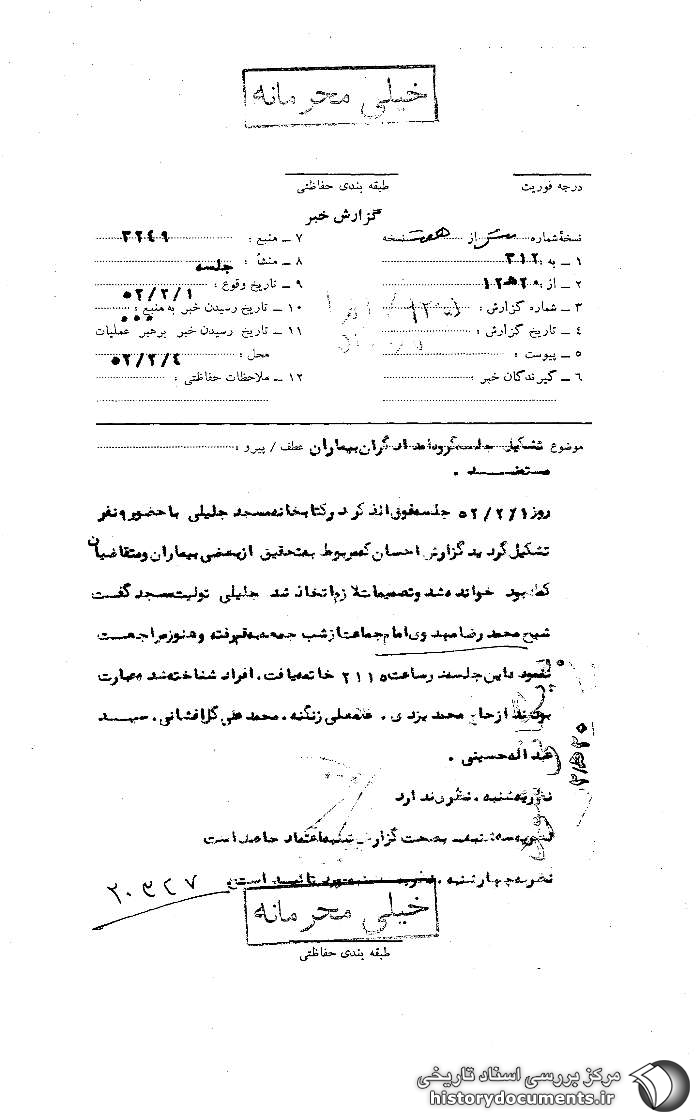 خیلی محرمانه
درجه فوریت
طبقه بندی حفاظتی
گزارش خبر
نسخهٔ شماره از هفت نسخه
۱ ــ به : ۳۱۲
۲ ــ از : ۲۰ ه‍ ۱۲
۳ ــ شماره گزارش :
۴ ــ تاریخ گزارش :
۵ ــ پیوست :
۶ ــ گیرندگان خبر :
۷ ــ منبع : ۳۲۴۹
۸ ــ منشأ : جلسه
۹ ــ تاریخ وقوع : ۵۲/۲/۱
۱۰ ــ تاریخ رسیدن خبر به منبع :
۱۱ ــ تاریخ رسیدن خبر برهبر عملیات
محل : ۵۲/۲/۴
۱۲ ــ ملاحظات حفاظتی :
موضوع تشکیل جلسه گروه امدادگران بیماران عطف / پیرو :
مستضند .
روز ۵۲/۲/۱ جلسه فوق الذکر در کتابخانه مسجد جلیلی با حضور ۹ نفر
تشکیل گردید گزارش احسان که مربوط به تحقیق از بعضی بیماران و متقاضیان
کمک بود خوانده شد و تصمیمات لازم اتخاذ شد جلیلی تولیت مسجد گفت
شیخ محمد رضا مهدوی امام جماعت از شب جمعه به قم رفته و هنوز مراجعت
ننموده این جلسه در ساعت ۲۱۱۵ خاتمه یافت . افراد شناخته شده عبارت
بودند از حاج محمد یزدی . غلامعلی زنگنه . محمد علی گل افشانی . سید
عبداله حسینی .
نظریه شنبه . نظری ندارد
نظریه سه شنبه . به صحت گزارش شنبه اعتماد حاصل است
نظریه چهارشنبه . نظریه سه شنبه مورد تائید است
۲۰۳۲۷
خیلی محرمانه
طبقه بندی حفاظتی
مرکز بررسی اسناد تاریخی
historydocuments.ir